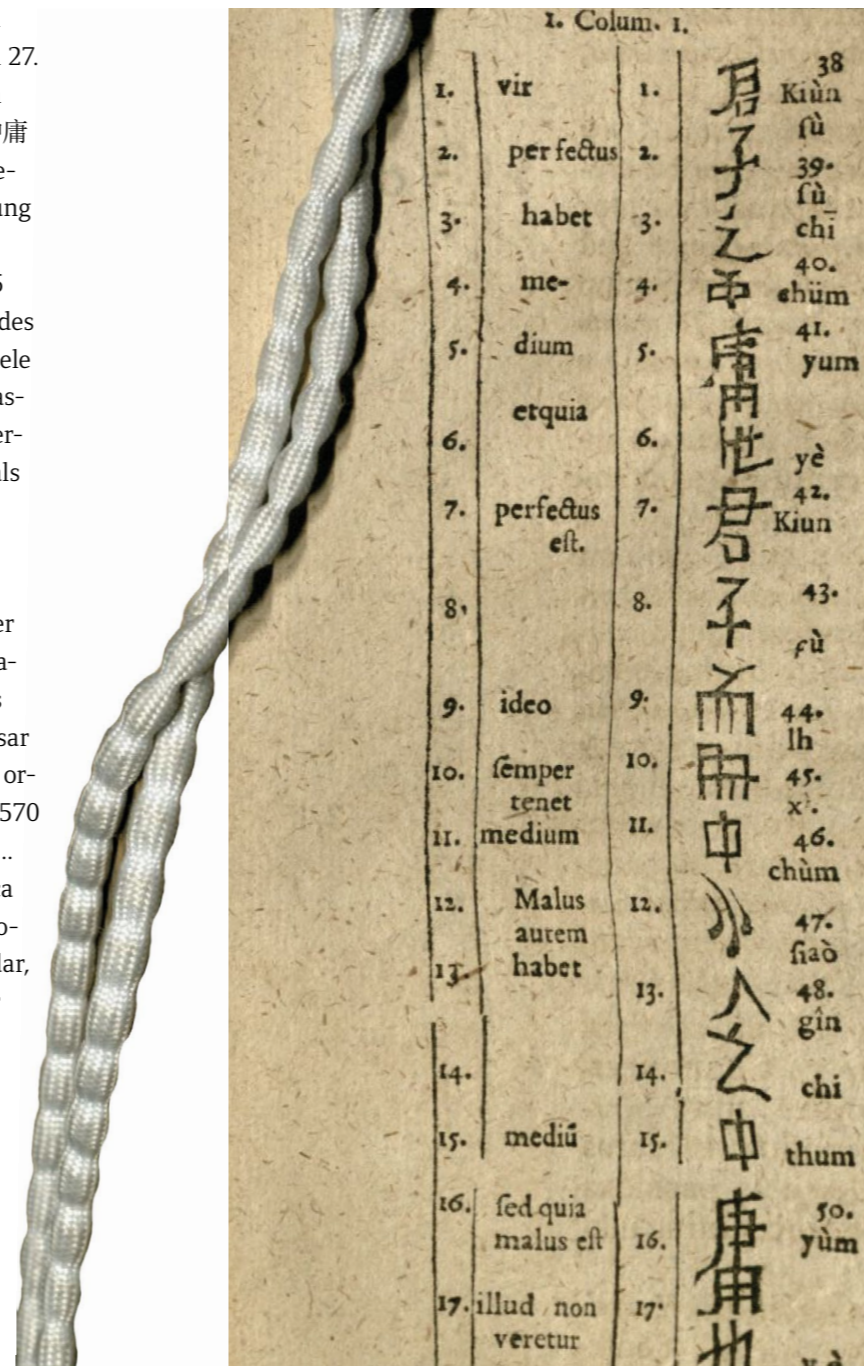 27.
庸
e-
ung
des
ele
as-
er-
als
er
a-
s
sar
or-
570
..
a
o-
lar,
1. Colum. 1.
38
1. vir 1. 君 Kiùn
sù
2. perfectus 2. 子 39.
sù
3. habet 3. 之 chī
40.
4. me- 4. 中 chüm
41.
5. dium 5. 庸 yum
etquia
6. 6. 也 yè
42.
7. perfectus 7. 君 Kiun
est.
8. 8. 子 43.
sù
9. ideo 9. 而 44.
lh
10. semper 10. 時 45.
tenet x.
11. medium 11. 中 46.
chùm
12. Malus 12. 小 47.
autem siaò
13. habet 13. 人 48.
gîn
14. 14. 之 chi
15. mediū 15. 中 thum
16. sed quia 50.
malus est 16. 庸 yùm
17. illud non 17. 也
veretur